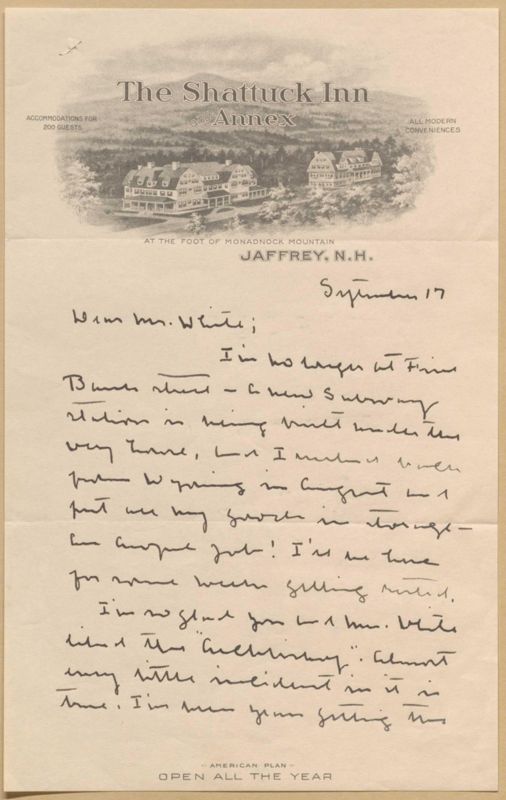 The Shattuck Inn
and Annex
ACCOMMODATIONS FOR
200 GUESTS
ALL MODERN
CONVENIENCES
AT THE FOOT OF MONADNOCK MOUNTAIN
JAFFREY, N.H.
September 17
Dear Mr. White;
I'm no longer at Five
Bank street - a new Subway
station is being built under the
very house, and I rushed back
from Wyoming in August and
put all my goods in storage -
an awful job! I'll be here
for some weeks getting rested.
I'm so glad you and Mrs. White
liked the "Archbishop". Almost
every little incident in it is
true. I've been years getting the
- AMERICAN PLAN -
OPEN ALL THE YEAR